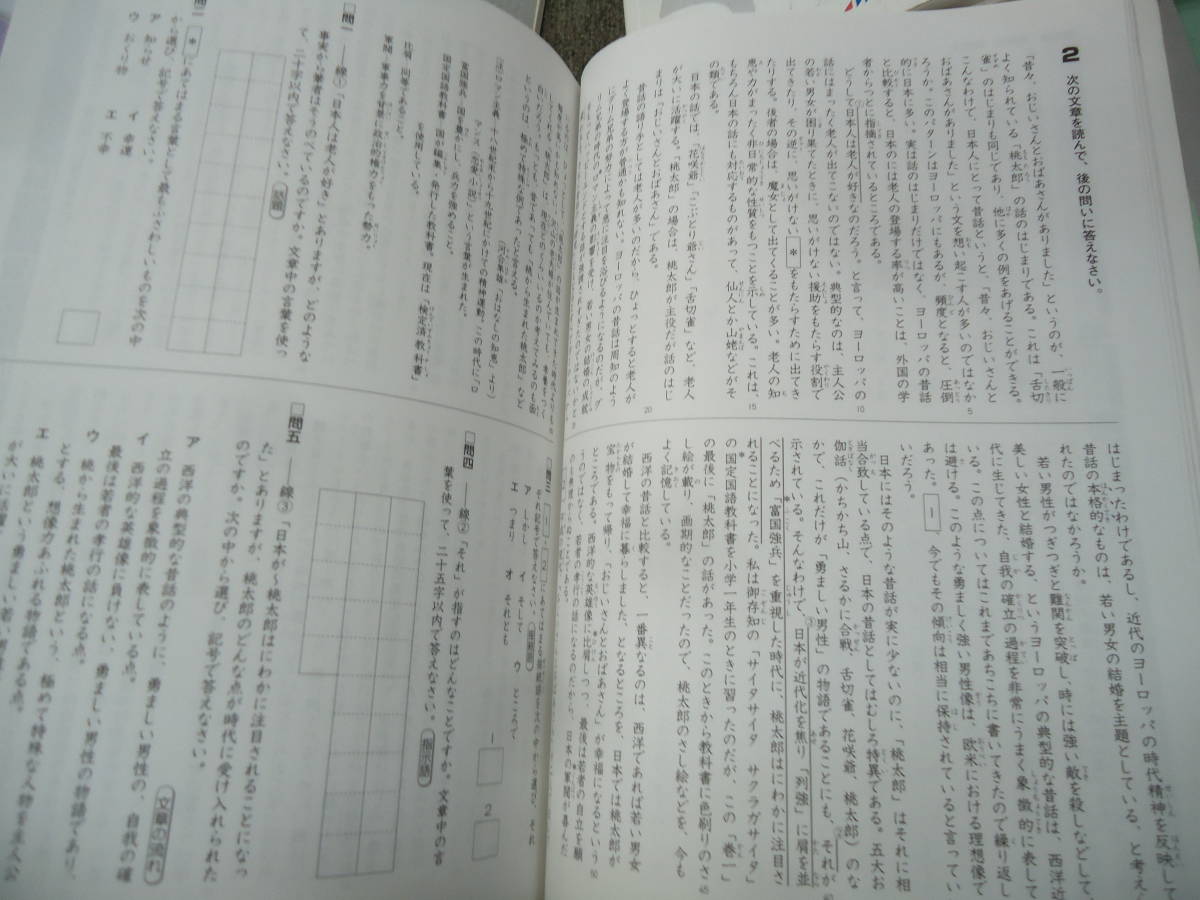 2 次の文章を読んで、後の問いに答えなさい。
「昔々、おじいさんとおばあさんがありました」というのが、一般に
よく知られている「桃太郎」の話のはじまりである。これは「舌切
雀」のはじまりも同じであり、他に多くの例をあげることができる。
こんなわけで、日本人にとって昔話というと、「昔々、おじいさんと
おばあさんがありました」という文を想い起こす人が多いのではなか
ろうか。このパターンはヨーロッパにもあるが、頻度となると、圧倒
的に日本に多い。実は話のはじまりだけではなく、ヨーロッパの昔話
と比較すると、日本のには老人の登場する率が高いことは、外国の学
者からつとに指摘されているところである。
どうして①日本人は老人が好きなのだろう。と言って、ヨーロッパの
話にはまったく老人が出てこないのではない。典型的なのは、主人公
の若い男女が困り果てたときに、思いがけない援助をもたらす役割で
出てきたり、その逆に、思いがけない＊をもたらすために出てき
たりする。後者の場合は、魔女として出てくることが多い。老人の知
恵や力がまったく非日常的な性質をもつことを示している。これは、
もちろん日本の話にも対応するものがあって、仙人とか山姥などがそ
の類である。
日本の話では、「花咲爺」「こぶとり爺さん」「舌切雀」など、老人
が大いに活躍する。「桃太郎」の場合は、桃太郎が主役だが話のはじ
まりは「おじいさんとおばあさん」である。
昔話の語り手としても老人が多いのだから、ひょっとすると老人が
よく登場する方が普通かも知れない。ヨーロッパの昔話は周知のよう
にグリム兄弟の努力によって急に注目を浴びるようになるのだが、グ
はじまったわけであるし、近代のヨーロッパの時代精神を反映して
昔話の本格的なものは、若い男女の結婚を主題としている、と考え
れたのではなかろうか。
若い男性がつぎつぎと難関を突破し、時には強い敵を殺しなどして、
美しい女性と結婚する、というヨーロッパの典型的な昔話は、西洋近
代に生じてきた、自我の確立の過程を非常にうまく象徴的に表して
いる。この点についてはこれまであちこちに書いてきたので繰り返し
は避ける。このような勇ましく強い男性像は、欧米における理想像で
あった。1、今でもその傾向は相当に保持されていると言ってい
いだろう。
日本にはそのような昔話が実に少ないのに、「桃太郎」はそれに相
当合致している点で、日本の昔話としてはむしろ特異である。五大お
伽話（かちかち山、さるかに合戦、舌切雀、花咲爺、桃太郎）のな
かで、これだけが「勇ましい男性」の物語であることにも、②それが
示されている。そんなわけで、③日本が近代化を焦り、「列強」に肩を並
べるため「富国強兵」を重視した時代に、桃太郎はにわかに注目さ
れることになった。私は御存知の「サイタサイタ サクラガサイタ」
の国定国語教科書を小学一年生のときに習ったのだが、この「巻一」
の最後に「桃太郎」の話があった。このときから教科書に色刷りのさ
し絵が載り、画期的なことだったので、桃太郎のさし絵などを、今も
よく記憶している。
西洋の昔話と比較すると、一番異なるのは、西洋であれば若い男女
が結婚して幸福に暮らしました、となるところを、日本では桃太郎が
宝物をもって帰り、「おじいさんとおばあさん」が幸福になるという
ところである。西洋的な英雄像に比肩しつつ、最後は若者の自立を願
うのではなく、若者の孝行の話になるのだから、日本の軍閥が喜んだ
といわれるのは、極めて特殊な例であったと言える。
（河合隼雄「おはなしの知恵」より）
（注）ロマン主義 十八世紀末から十九世紀にかけての精神運動。この時代に「ロ
マンス」（恋愛小説）という言葉が生まれた。
富国強兵 国を豊かにし、兵力を強めること。
国定国語教科書 国が編集、発行した教科書。現在は、「検定済教科書」
を使用している。
比肩 同等であること。
軍閥 軍事力を背景に政治的権力をもった勢力。
問一 ――線①「日本人は老人が好き」とありますが、どのような
事実から筆者はそうのべているのですか。文章中の言葉を使っ
て、二十字以内で答えなさい。
問二 ＊にあてはまる言葉として最もふさわしいものを次の中
から選び、記号で答えなさい。
ア 知らせ イ 幸運
ウ おくり物 エ 不幸
問三 1・2にあてはまる接続語を次の中から選び、それ
ぞれ記号で答えなさい。 接続語
ア しかし イ そして ウ ところで
エ つまり オ それとも
1 2
問四 ――線②「それ」が指すのはどんなことですか。文章中の言
葉を使って、二十五字以内で答えなさい。 指示語
問五 ――線③「日本が〜桃太郎はにわかに注目されることになっ
た」とありますが、桃太郎のどんな点が時代に受け入れられた
のですか。次の中から選び、記号で答えなさい。 文章の流れ
ア 西洋の典型的な昔話のように、勇ましい男性の、自我の確
立の過程を象徴的に表している点。
イ 西洋的な英雄像に負けない、勇ましい男性の物語であり、
最後は若者の孝行の話になる点。
ウ 桃から生まれた桃太郎という、極めて特殊な人物を主人公
とする、想像力あふれる物語である点。
エ 桃太郎という勇ましい若い男